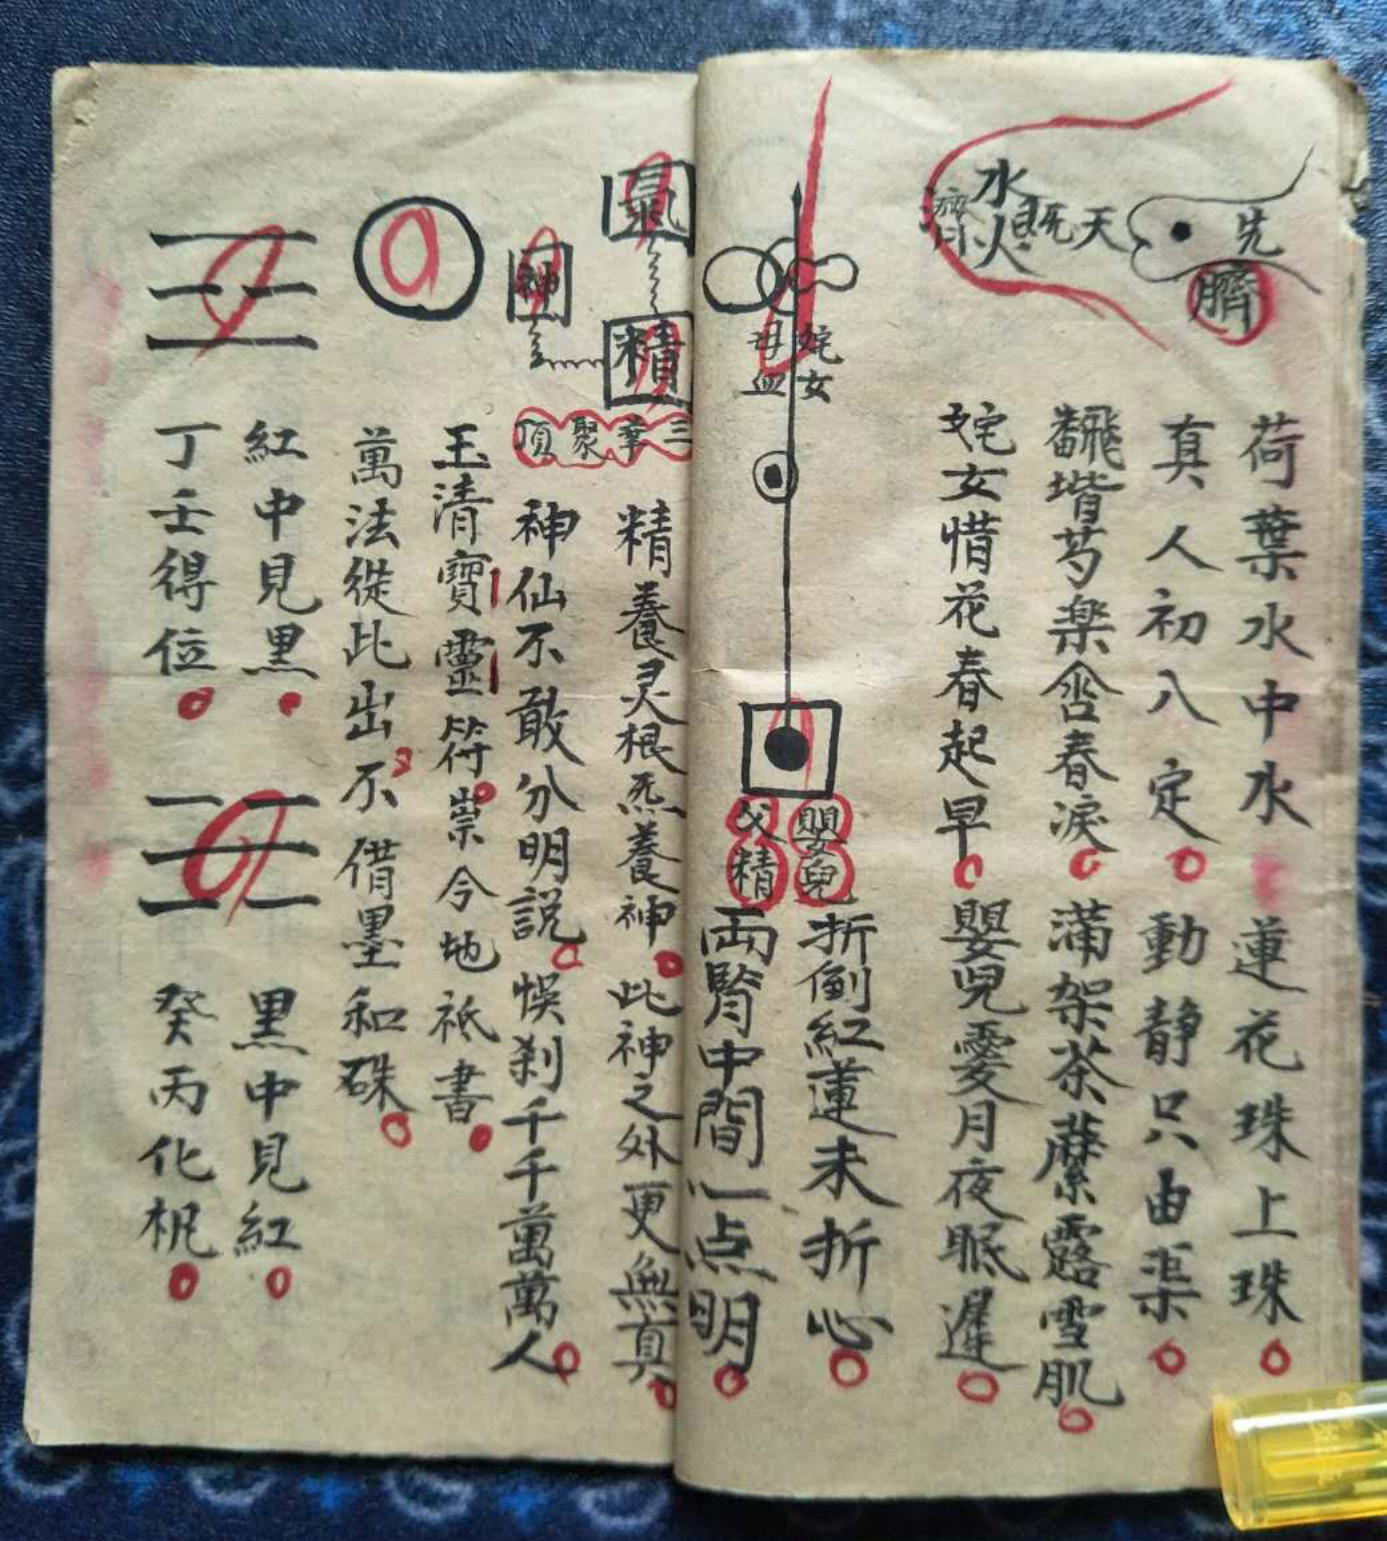 先天炁
臍
水火既濟
荷葉水中水 蓮花珠上珠
真人初八定 動靜只由渠
翻堦芍楽含春淚 滿架茶蘼露雪肌
姹女惜花春起早 嬰兒愛月夜眠遲
姹女
母血
嬰兒
父精
折倒紅蓮未折心
兩腎中間一点明
氣
精
神
三華聚頂
精養灵根炁養神 此神之外更無真
神仙不敢分明説 悞刹千千萬萬人
玉清寶靈符 崇今地祇書
萬法從此出 不借墨和硃
紅中見黑
丁壬得位
黑中見紅
癸丙化机